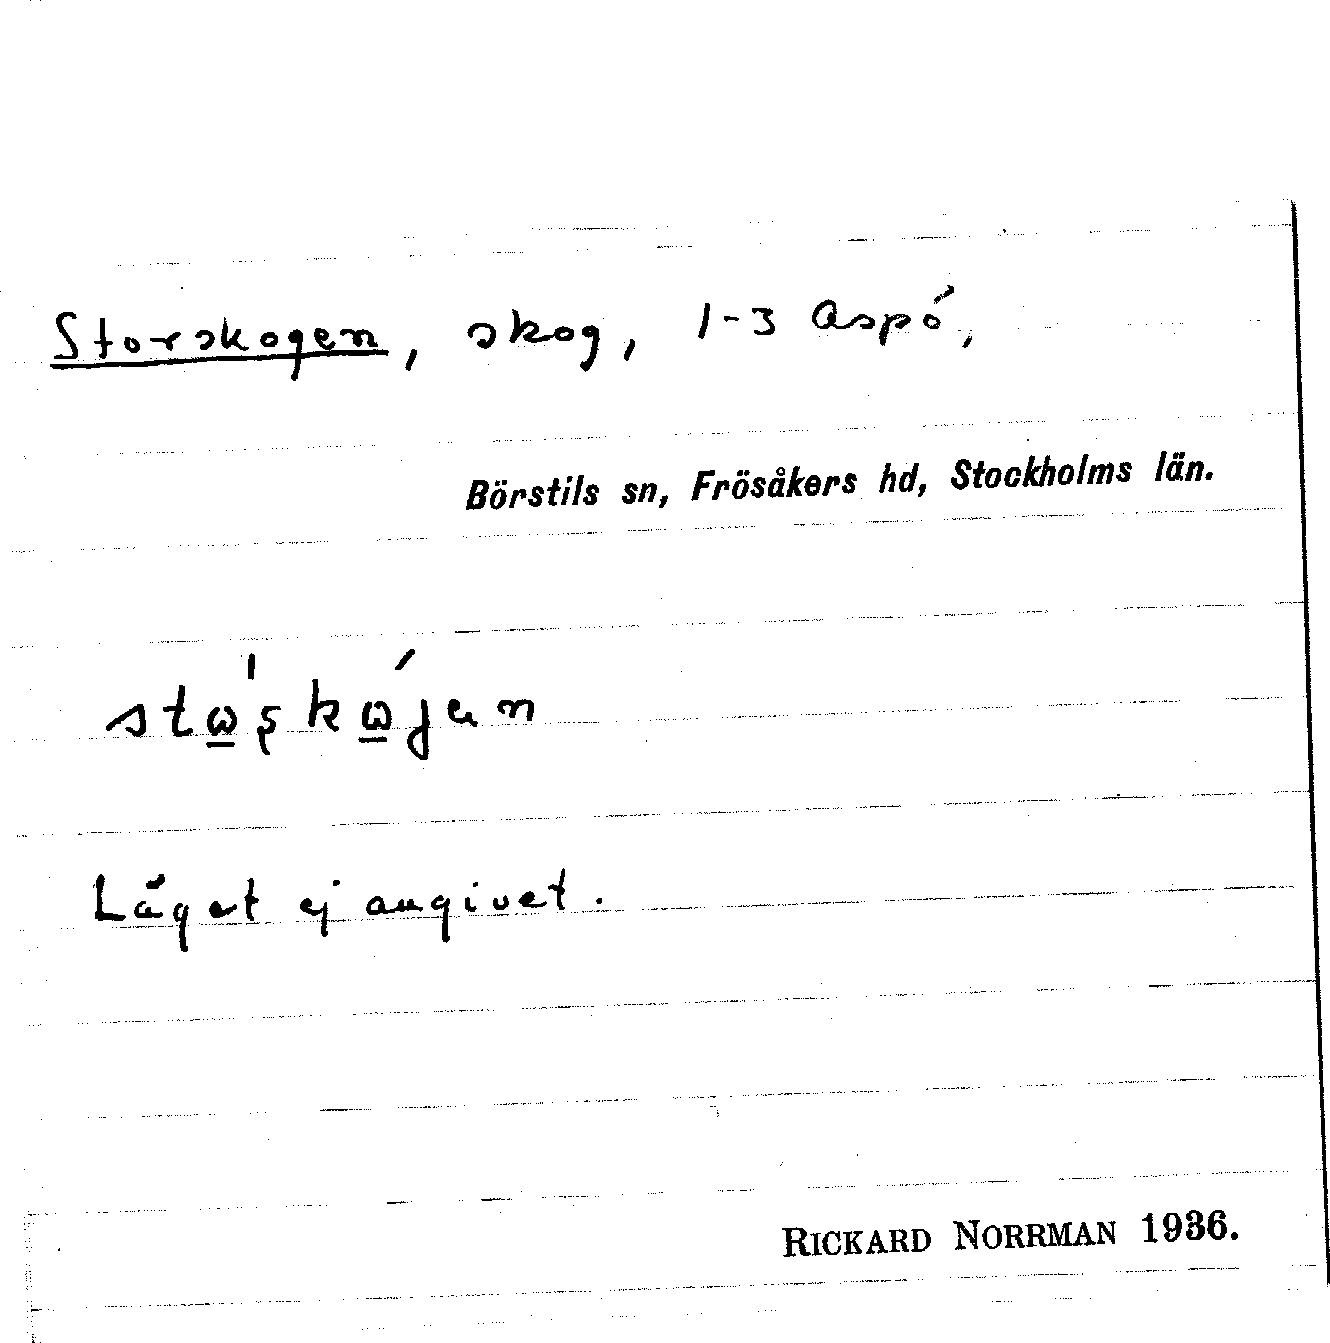 Storskogen, skog, 1-3 Aspö,
Börstils sn, Frösåkers hd, Stockholms län.
stω̲'ʂkώ̲jen
Läget ej angivet.
RICKARD NORRMAN 1936.